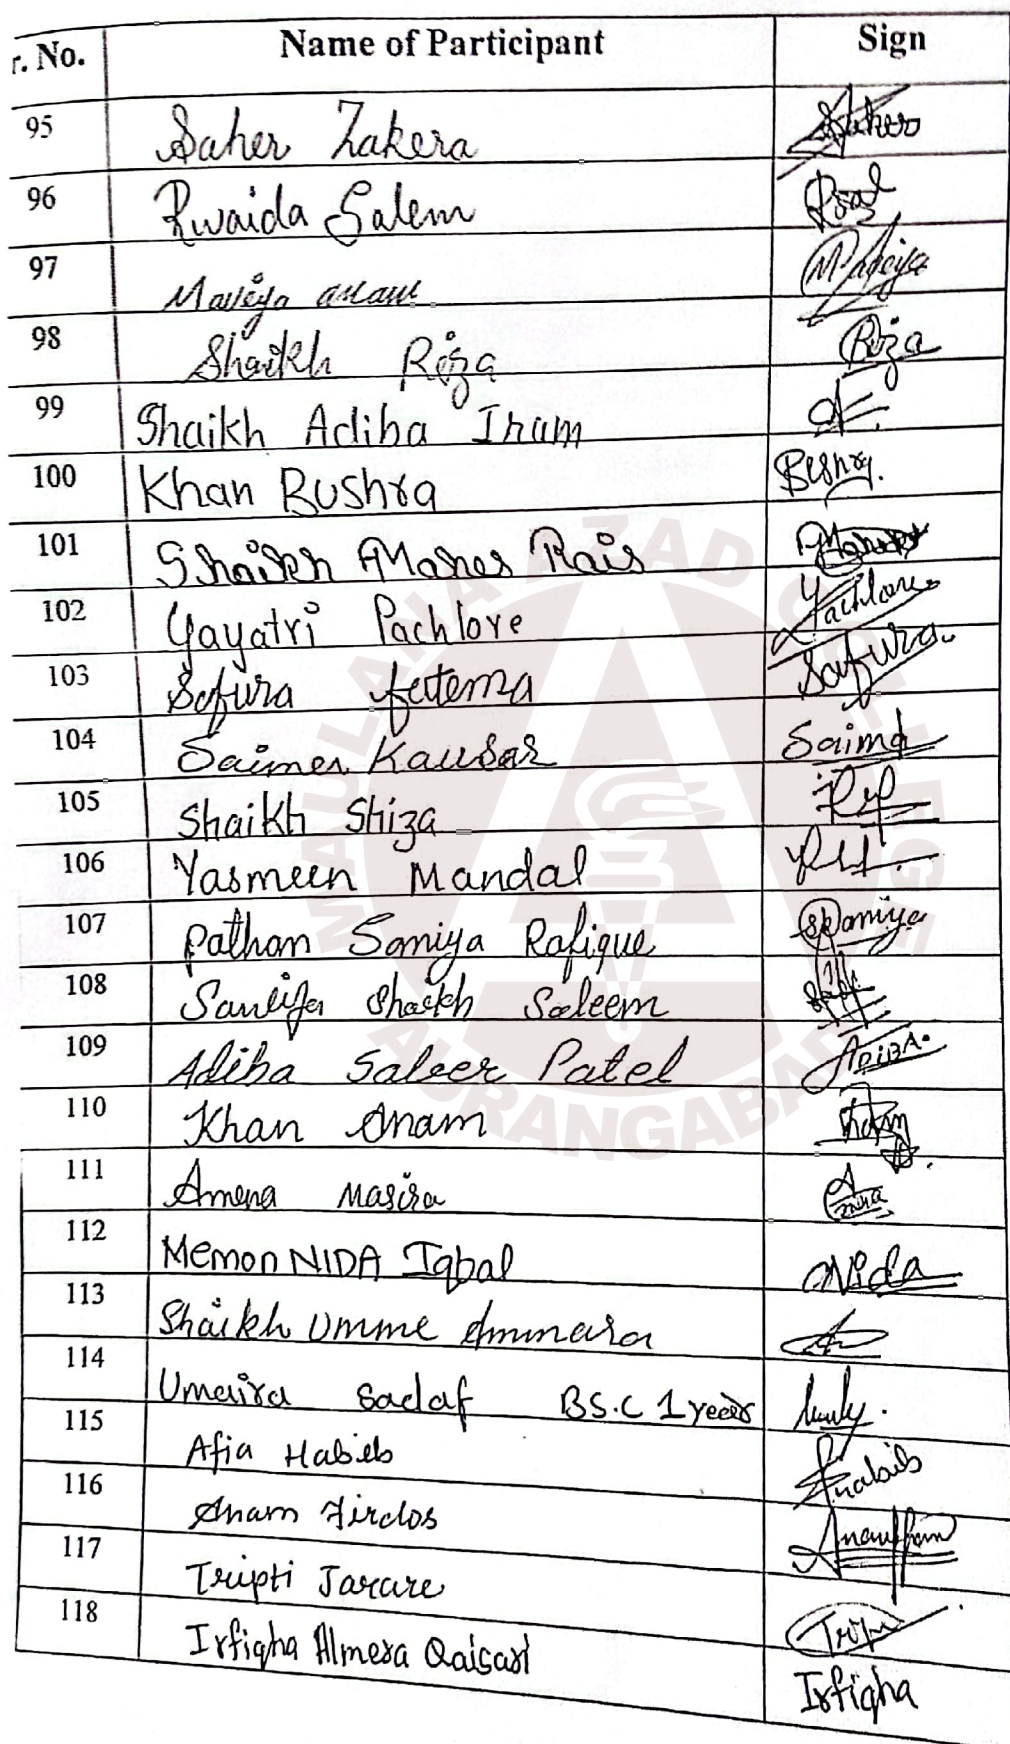 r. No. Name of Participant Sign
95 Saher Zakera Saher
96 Rwaida Salem
97 Maviya anam Maveiya
98 Shaikh Riza Riza
99 Shaikh Adiba Irum
100 Khan Bushra Bushra.
101 Shaikh Mahes Rais
102 Gayatri Pachlore Pachlore
103 Safura fatema Safura.
104 Saima Kausar Saima
105 Shaikh Shiza
106 Yasmeen Mandal
107 Pathan Saniya Rafique Saniya
108 Saniya Shaikh Saleem
109 Adiba Saleer Patel ADIBA.
110 Khan Anam
111 Amena Masira
112 Memon NIDA Iqbal Nida
113 Shaikh Umme Ammara
114 Umaira Sadaf BS.C 1 year
115 Afia Habib Habib
116 Anam Firdos
117 Tripti Jarare
118 Irfiqha Almera Qaisari Irfiqha
MAULANA AZAD COLLEGE
AURANGABAD